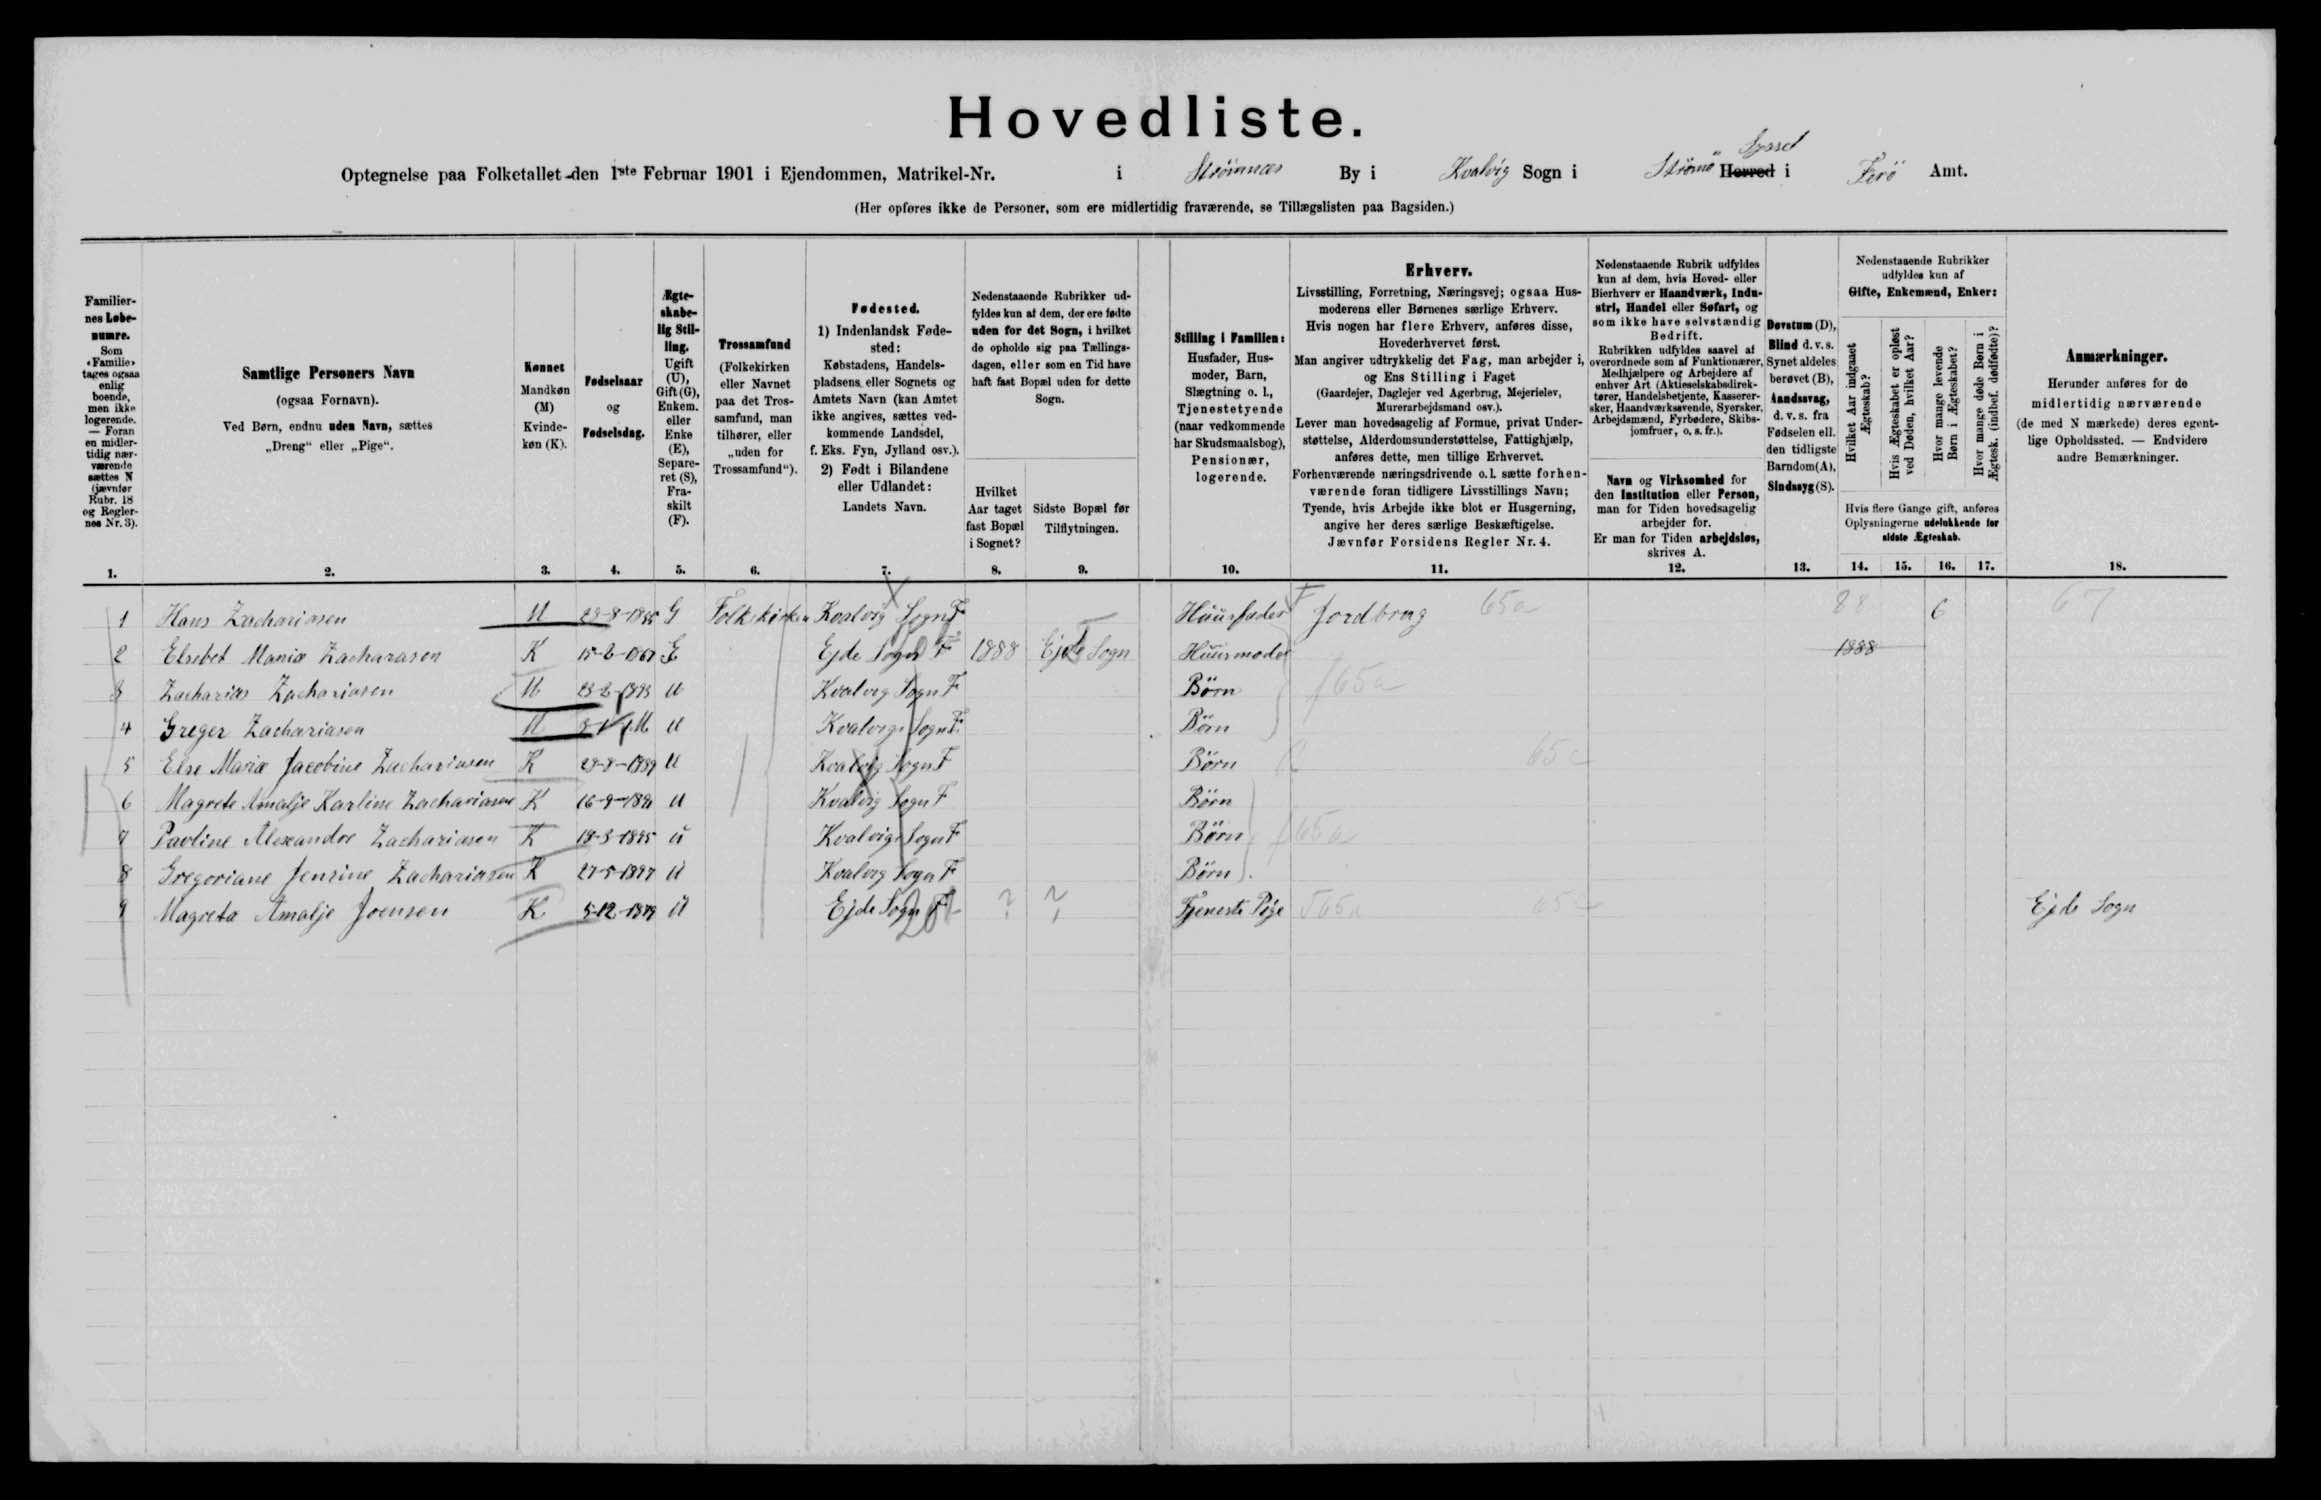 Hovedliste.
Syssel
Optegnelse paa Folketallet den 1ste Februar 1901 i Ejendommen, Matrikel-Nr. i Strömnæs By i Kvalvig Sogn i Strömö Herred i Ferö Amt.
(Her opføres ikke de Personer, som ere midlertidig fraværende, se Tillægslisten paa Bagsiden.)
Familier-
nes Løbe-
numre.
Som
«Familie»
tages ogsaa
enlig
boende,
men ikke
logerende.
— Foran
en midler-
tidig nær-
værende
sættes N
(jævnfør
Rubr. 18
og Regler-
nes Nr. 3).
Samtlige Personers Navn
(ogsaa Fornavn).
Ved Børn, endnu uden Navn, sættes
„Dreng“ eller „Pige“.
Kønnet
Mandkøn
(M)
Kvinde-
køn (K).
Fødselsaar
og
Fødselsdag.
Ægte-
skabe-
lig Stil-
ling.
Ugift
(U),
Gift (G),
Enkem.
eller
Enke
(E),
Separe-
ret (S),
Fra-
skilt
(F).
Trossamfund
(Folkekirken
eller Navnet
paa det Tros-
samfund, man
tilhører, eller
„uden for
Trossamfund“).
Fødested.
1) Indenlandsk Føde-
sted:
Købstadens, Handels-
pladsens eller Sognets og
Amtets Navn (kan Amtet
ikke angives, sættes ved-
kommende Landsdel,
f. Eks. Fyn, Jylland osv.).
2) Født i Bilandene
eller Udlandet:
Landets Navn.
Nedenstaaende Rubrikker ud-
fyldes kun af dem, der ere fødte
uden for det Sogn, i hvilket
de opholde sig paa Tællings-
dagen, eller som en Tid have
haft fast Bopæl uden for dette
Sogn.
Hvilket
Aar taget
fast Bopæl
i Sognet?
Sidste Bopæl før
Tilflytningen.
Stilling i Familien:
Husfader, Hus-
moder, Barn,
Slægtning o. l.,
Tjenestetyende
(naar vedkommende
har Skudsmaalsbog),
Pensionær,
logerende.
Erhverv.
Livsstilling, Forretning, Næringsvej; ogsaa Hus-
moderens eller Børnenes særlige Erhverv.
Hvis nogen har flere Erhverv, anføres disse,
Hovederhvervet først.
Man angiver udtrykkelig det Fag, man arbejder i,
og Ens Stilling i Faget
(Gaardejer, Daglejer ved Agerbrug, Mejerielev,
Murerarbejdsmand osv.).
Lever man hovedsagelig af Formue, privat Under-
støttelse, Alderdomsunderstøttelse, Fattighjælp,
anføres dette, men tillige Erhvervet.
Forhenværende næringsdrivende o. l. sætte forhen-
værende foran tidligere Livsstillings Navn;
Tyende, hvis Arbejde ikke blot er Husgerning,
angive her deres særlige Beskæftigelse.
Jævnfør Forsidens Regler Nr. 4.
Nedenstaaende Rubrik udfyldes
kun af dem, hvis Hoved- eller
Bierhverv er Haandværk, Indu-
stri, Handel eller Søfart, og
som ikke have selvstændig
Bedrift.
Rubrikken udfyldes saavel af
overordnede som af Funktionærer,
Medhjælpere og Arbejdere af
enhver Art (Aktieselskabsdirek-
tører, Handelsbetjente, Kasserer-
sker, Haandværkssvende, Syersker,
Arbejdsmænd, Fyrbødere, Skibs-
jomfruer, o. s. fr.).
Navn og Virksomhed for
den Institution eller Person,
man for Tiden hovedsagelig
arbejder for.
Er man for Tiden arbejdsløs,
skrives A.
Døvstum (D),
Blind d. v. s.
Synet aldeles
berøvet (B),
Aandssvag,
d. v. s. fra
Fødselen ell.
den tidligste
Barndom (A),
Sindssyg (S).
Nedenstaaende Rubrikker
udfyldes kun af
Gifte, Enkemænd, Enker:
Hvilket Aar indgaaet
Ægteskab?
Hvis Ægteskabet er opløst
ved Døden, hvilket Aar?
Hvor mange levende
Børn i Ægteskabet?
Hvor mange døde Børn i
Ægtesk. (indbef. dødfødte)?
Hvis flere Gange gift, anføres
Oplysningerne udelukkende for
sidste Ægteskab.
Anmærkninger.
Herunder anføres for de
midlertidig nærværende
(de med N mærkede) deres egent-
lige Opholdssted. — Endvidere
andre Bemærkninger.
1. 2. 3. 4. 5. 6. 7. 8. 9. 10. 11. 12. 13. 14. 15. 16. 17. 18.
1 Hans Zachariasen M G Folkekirken Kvalvig Sogn F Huusfader Jordbrug 65a 88 6 67
2 Elsebet Maria Zachariasen K G Ejde Sogn F 1888 Ejde Sogn Huusmoder 1888
3 Zacharias Zachariasen M U Kvalvig Sogn F Börn 65a
4 Greger Zachariasen M U Kvalvig Sogn F Börn
5 Else Maria Jacobine Zachariasen K U Kvalvig Sogn F Börn 65c
6 Magrete Amalje Karline Zachariasen K U Kvalvig Sogn F Börn
7 Pavline Alexandre Zachariasen K 18-3-1895 U Kvalvig Sogn F Börn 65a
8 Gregoriane Jensine Zachariasen K 27-5-1897 U Kvalvig Sogn F Börn
9 Magreta Amalje Joensen K U Ejde Sogn F ? ? Tjeneste Pige 65a Ejde Sogn